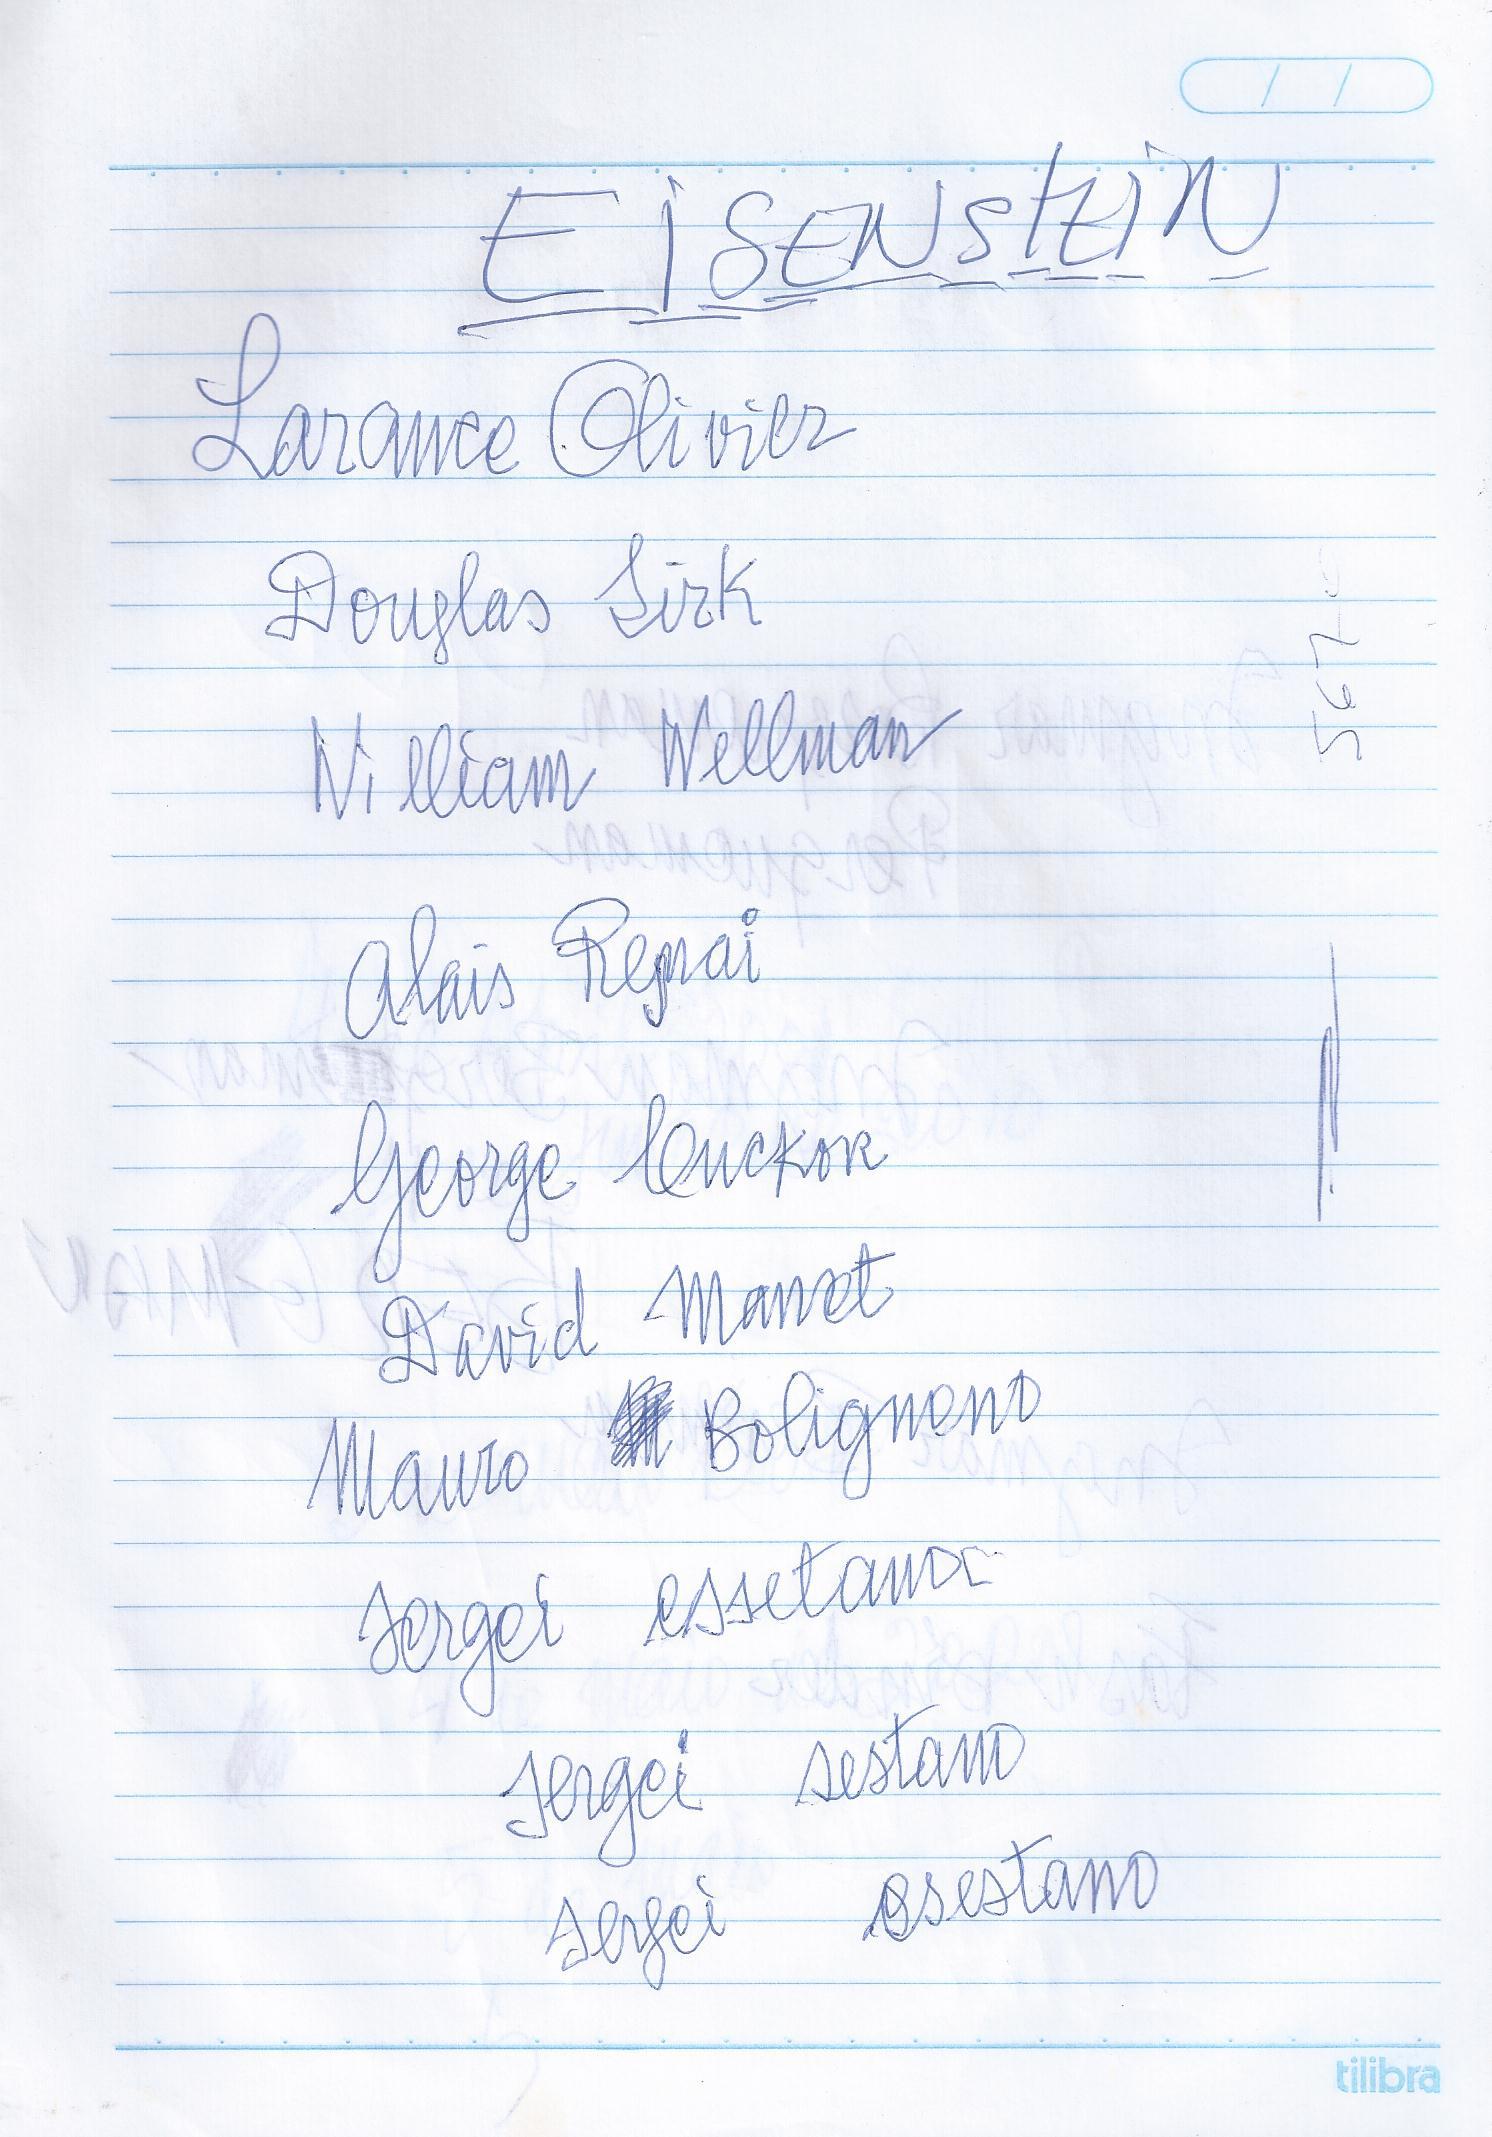 EISENSTEIN
Larance Olivier
Douglas Sirk
William Wellman
Alais Regnai
George Cuckor
David Manet
Mauro Bolignono
Sergei essetano
Sergei sestano
Sergei esestano
567
tilibra